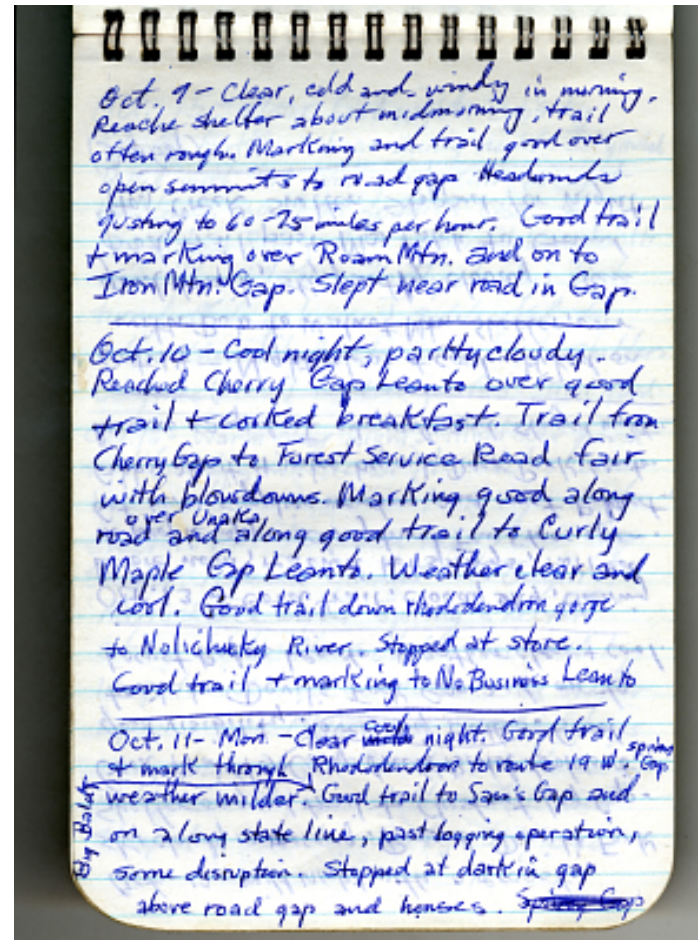 Oct. 9 - Clear, cold and windy in morning.
Reache shelter about midmorning, trail
often rough. Marking and trail good over
open summits to road gap Headwinds
gusting to 60-75 miles per hour. Good trail
+ marking over Roam Mtn. and on to
Iron Mtn. Gap. Slept near road in Gap.
Oct. 10 - Cool night, partly cloudy.
Reached Cherry Gap Leanto over good
trail + cooked breakfast. Trail from
Cherry Gap to Forest Service Road fair
with blowdowns. Marking good along
over Unaka
road and along good trail to Curly
Maple Gap Leanto. Weather clear and
cool. Good trail down rhododendron gorge
to Nolichucky River. Stopped at store.
Good trail + marking to No Business Leanto
Oct. 11 - Mon. - Clear cool night. Good trail
+ mark through Rhododendron to route 19 W. Spivey Gap
weather milder. Good trail to Sam's Gap and
on along state line, past logging operation,
some disruption. Stopped at dark in gap
above road gap and houses. Spivey Gap
Big Bald